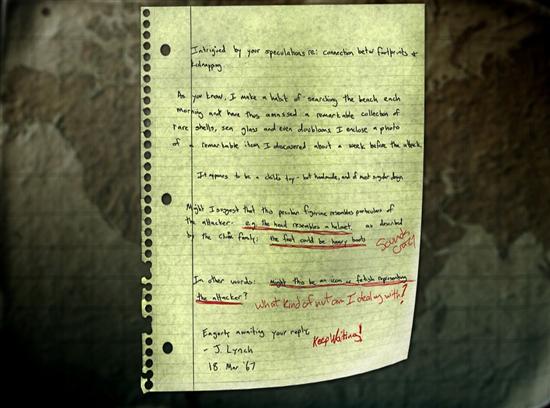 Intrigued by your speculations re: connection betw footprints &
kidnapping
As you know, I make a habit of searching the beach each
morning and have thus amassed a remarkable collection of
rare shells, sea glass and even doubloons I enclose a photo
of a remarkable item I discovered about a week before the attack.
It appears to be a child's toy - but handmade, and of most
Might I suggest that this peculiar figurine resembles particulars of
the attacker- e.g. the head resembles a helmet as described
by the family; the feet could be heavy boots
Sounds crazy!
In other words: Might this be an icon or fetish representing
the attacker?
What kind of nut am I dealing with?
Eagerly awaiting your reply,
Keep Waiting!
- J. Lynch
18. Mar. '67